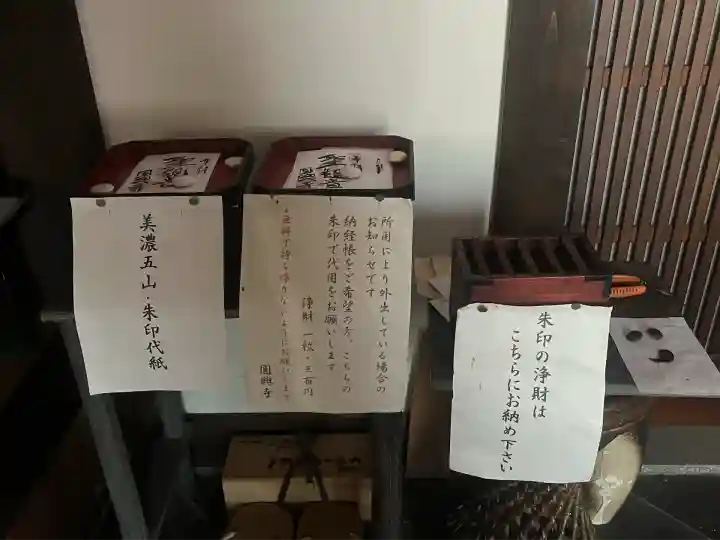 美濃五山・朱印代紙
所用により外出している場合の
お知らせです
納経帳をご希望の方、こちらの
朱印で代用をお願いします
浄財 一枚・三百円
圓興寺
朱印の浄財は
こちらにお納め下さい